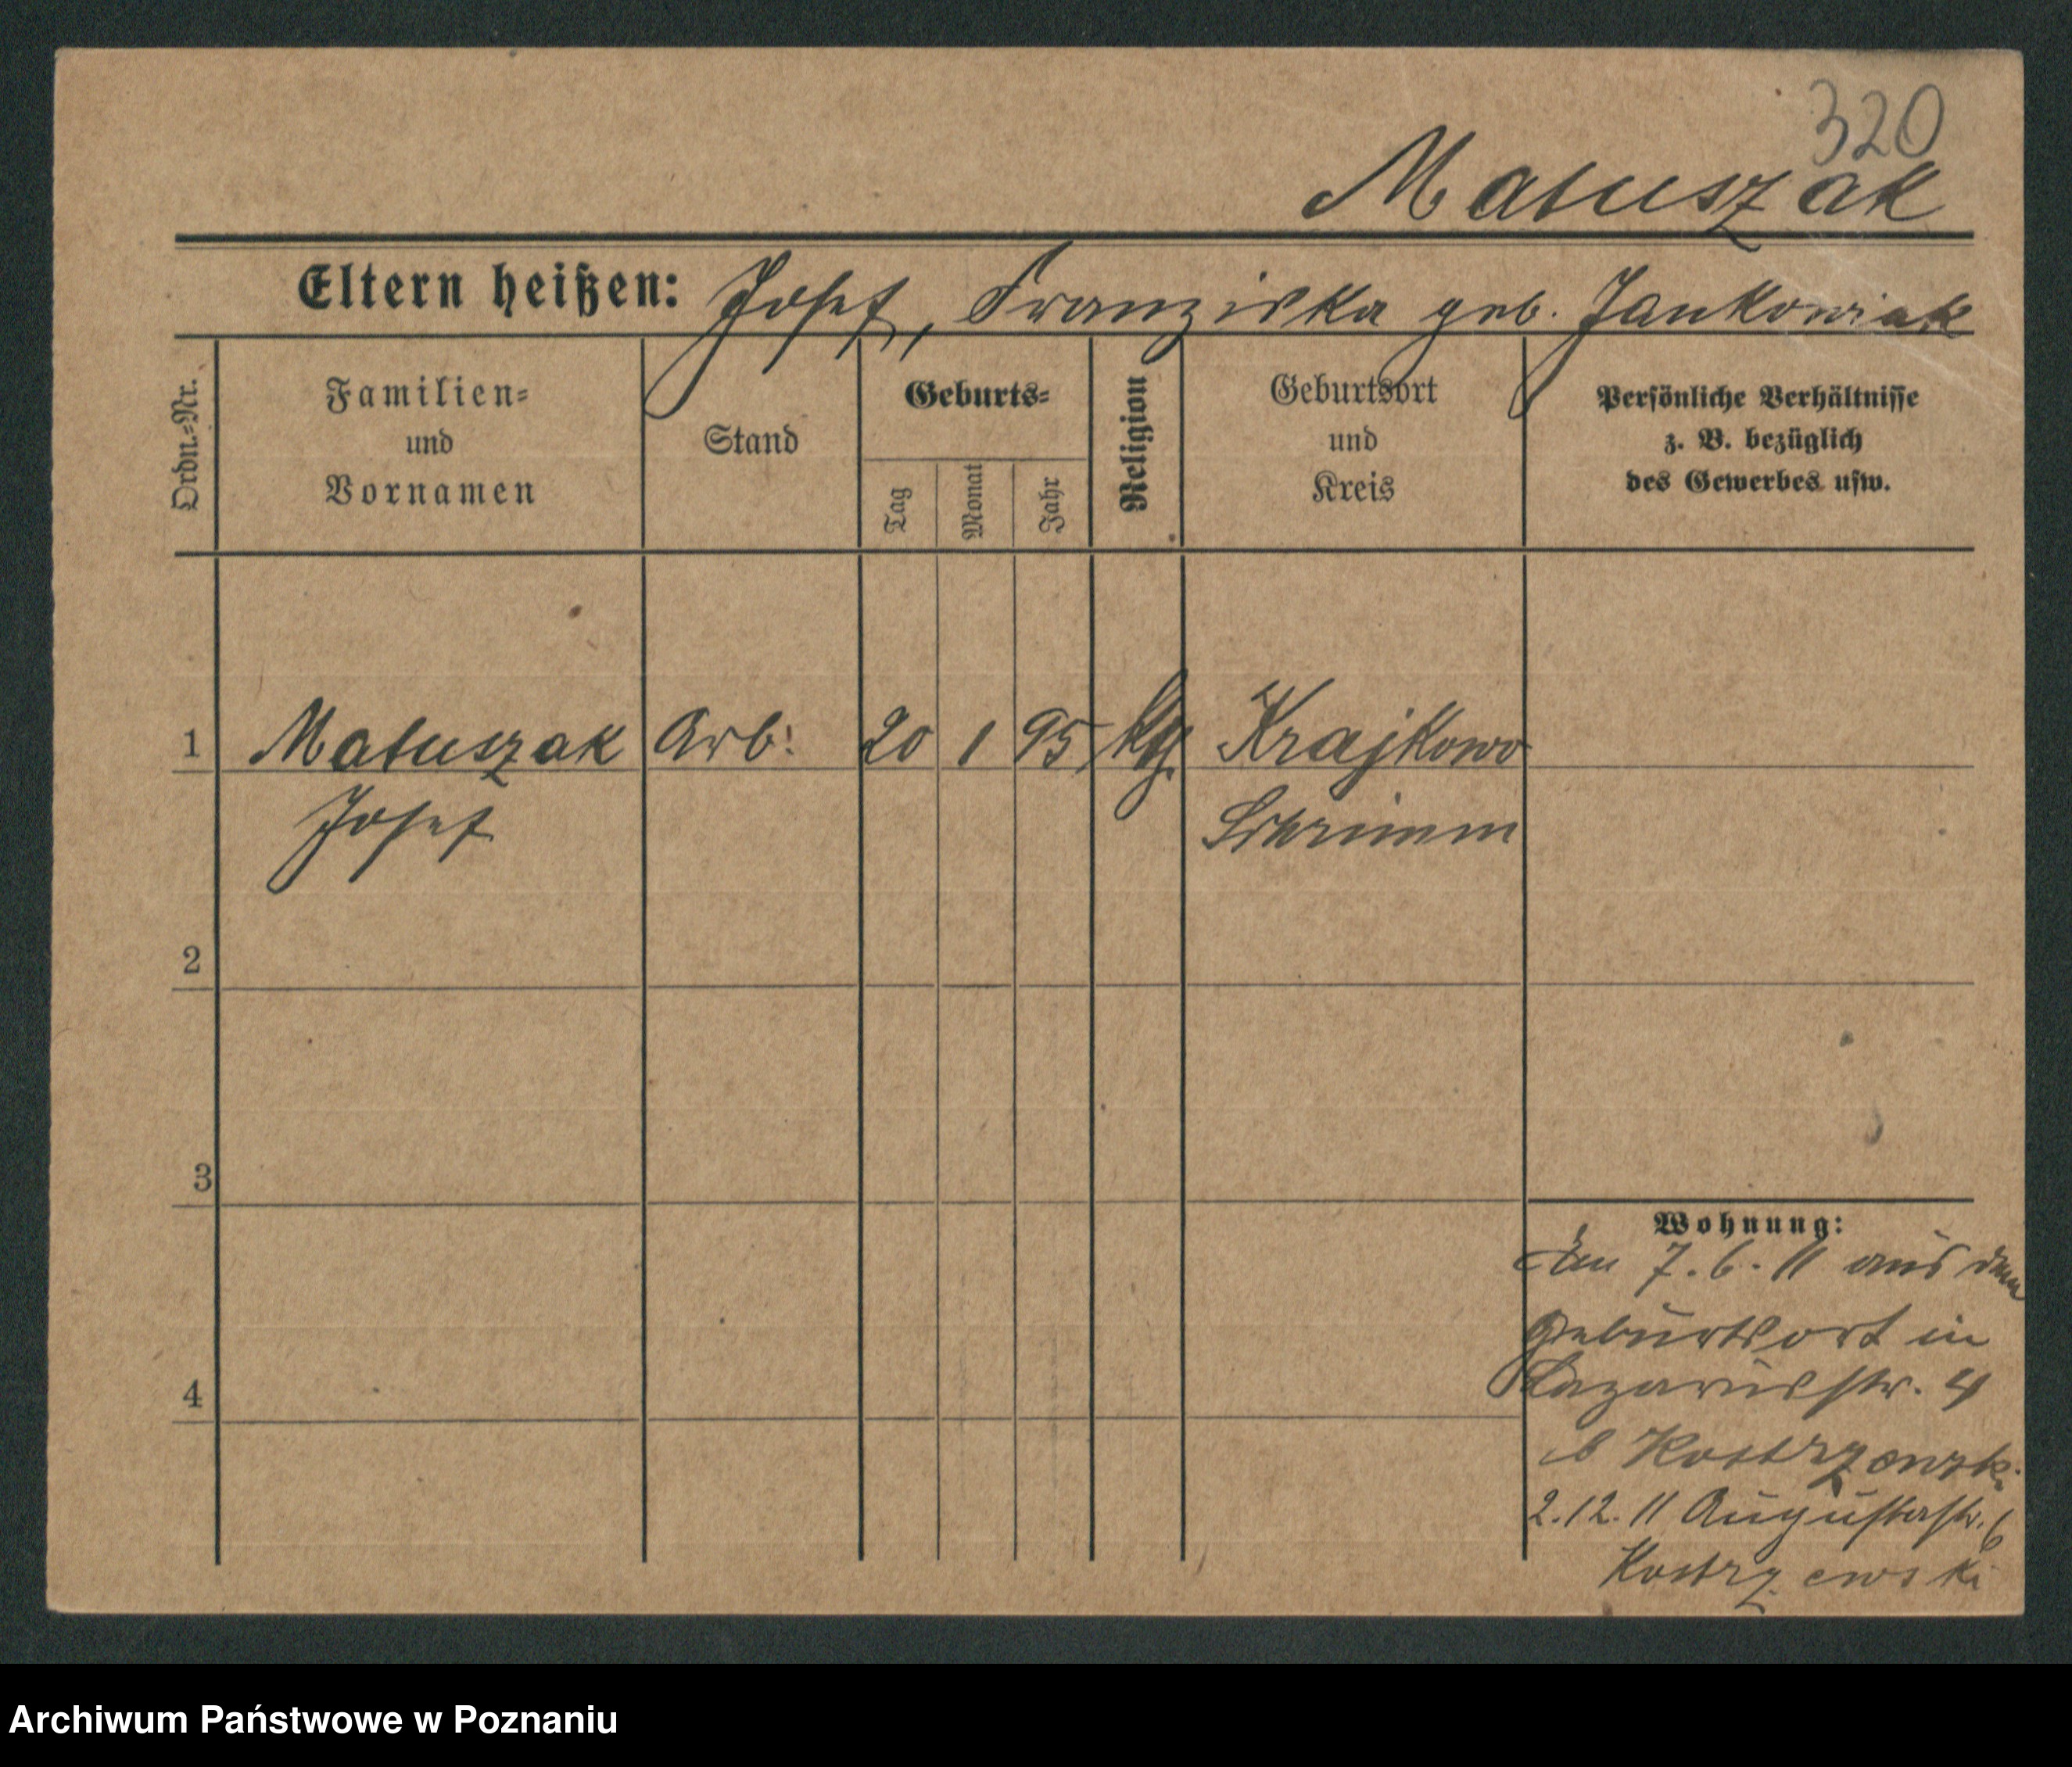 320
Matuszak
Eltern heißen: Josef, Franziska geb. Jankowiak
Ordn.-Nr.
Familien-
und
Vornamen
Stand
Geburts-
Tag
Monat
Jahr
Religion
Geburtsort
und
Kreis
Persönliche Verhältnisse
z. B. bezüglich
des Gewerbes usw.
1 Matuszak Arb: 20 1 95 ktg. Krajkowo
Josef Schrimm
2
3
4
Wohnung:
7.6.11 aus dem
Geburtsort in
Lazarusstr. 4
b Kostrzewski
2.12.11 Augustastr. 6
Kostrzewski
Archiwum Państwowe w Poznaniu